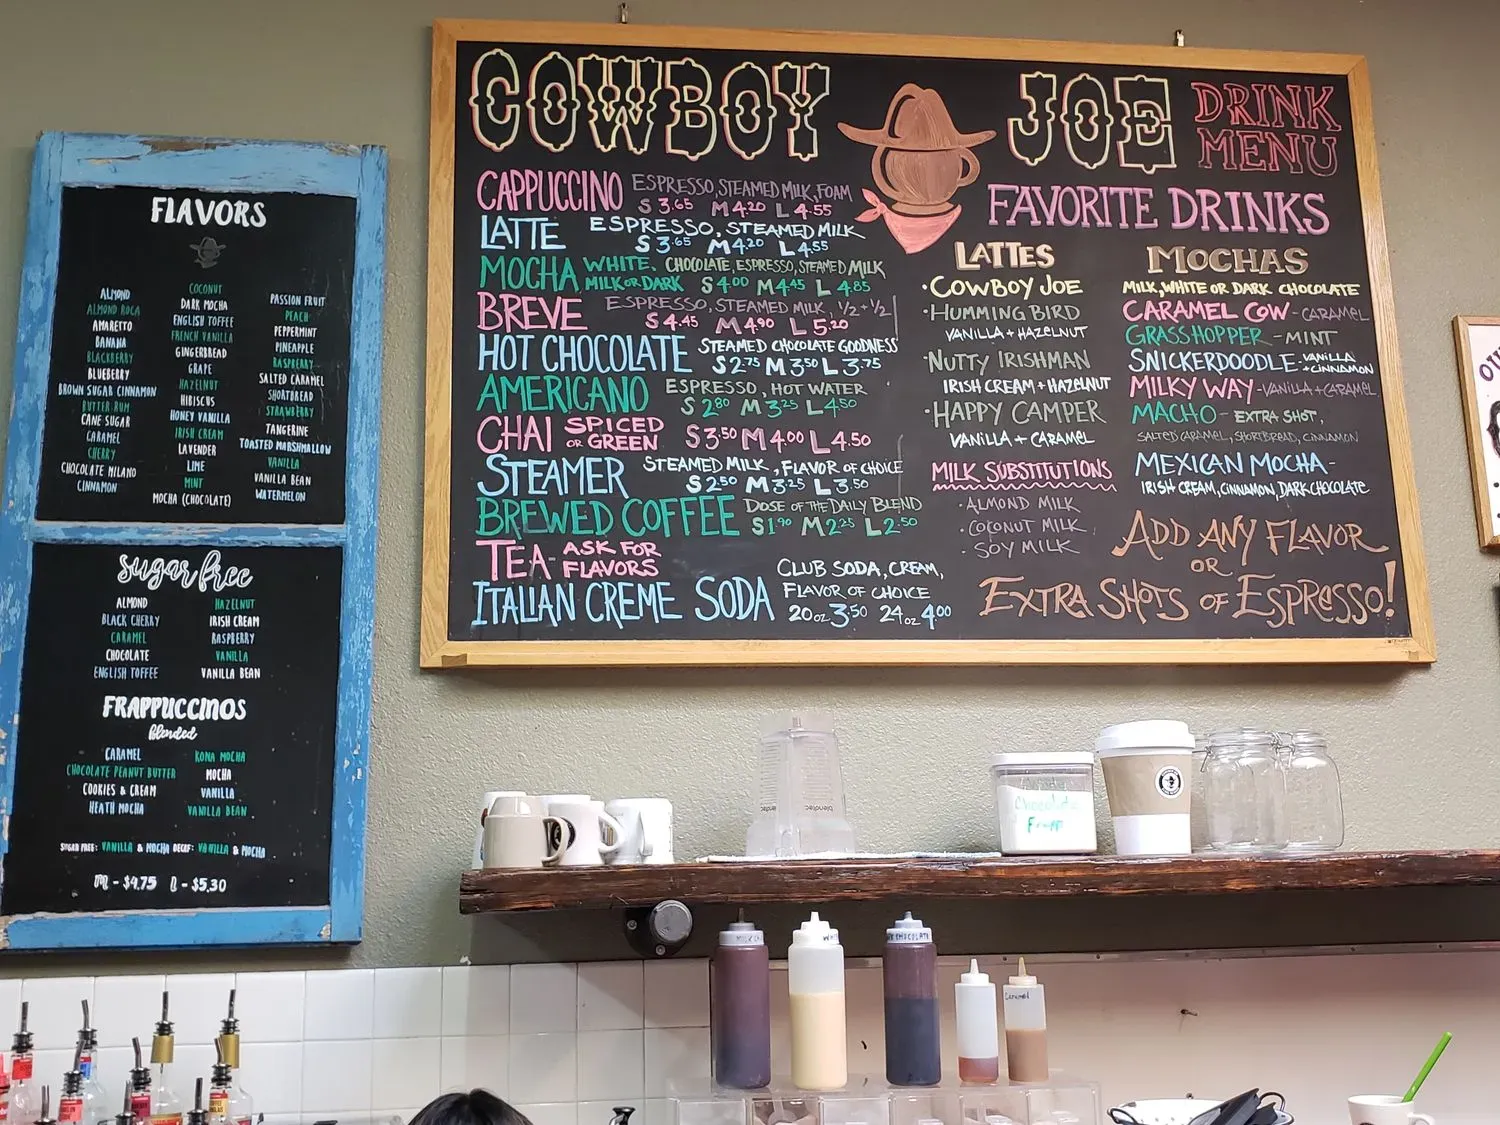 FLAVORS
ALMOND
ALMOND ROCA
AMARETTO
BANANA
BLACKBERRY
BLUEBERRY
BROWN SUGAR CINNAMON
BUTTER RUM
CANE SUGAR
CARAMEL
CHERRY
CHOCOLATE MILANO
CINNAMON
COCONUT
DARK MOCHA
ENGLISH TOFFEE
FRENCH VANILLA
GINGERBREAD
GRAPE
HAZELNUT
HIBISCUS
HONEY VANILLA
IRISH CREAM
LAVENDER
LIME
MINT
MOCHA (CHOCOLATE)
PASSION FRUIT
PEACH
PEPPERMINT
PINEAPPLE
RASPBERRY
SALTED CARAMEL
SHORTBREAD
STRAWBERRY
TANGERINE
TOASTED MARSHMALLOW
VANILLA
VANILLA BEAN
WATERMELON
sugar free
ALMOND
BLACK CHERRY
CARAMEL
CHOCOLATE
ENGLISH TOFFEE
HAZELNUT
IRISH CREAM
RASPBERRY
VANILLA
VANILLA BEAN
FRAPPUCCINOS
blended
CARAMEL
CHOCOLATE PEANUT BUTTER
COOKIES & CREAM
HEATH MOCHA
KONA MOCHA
MOCHA
VANILLA
VANILLA BEAN
SUGAR FREE: VANILLA & MOCHA DECAF: VANILLA & MOCHA
M - $4.75 L - $5.30
COWBOY JOE DRINK MENU
CAPPUCCINO ESPRESSO, STEAMED MILK, FOAM
S 3.65 M 4.20 L 4.55
LATTE ESPRESSO, STEAMED MILK
S 3.65 M 4.20 L 4.55
MOCHA WHITE, MILK OR DARK CHOCOLATE, ESPRESSO, STEAMED MILK
S 4.00 M 4.45 L 4.85
BREVE ESPRESSO, STEAMED MILK, 1/2 + 1/2
S 4.45 M 4.90 L 5.20
HOT CHOCOLATE STEAMED CHOCOLATE GOODNESS
S 2.75 M 3.50 L 3.75
AMERICANO ESPRESSO, HOT WATER
S 2.80 M 3.25 L 4.50
CHAI SPICED OR GREEN S 3.50 M 4.00 L 4.50
STEAMER STEAMED MILK, FLAVOR OF CHOICE
S 2.50 M 3.25 L 3.50
BREWED COFFEE DOSE OF THE DAILY BLEND
S 1.90 M 2.25 L 2.50
TEA - ASK FOR FLAVORS
ITALIAN CREME SODA CLUB SODA, CREAM,
FLAVOR OF CHOICE
20oz 3.50 24oz 4.00
FAVORITE DRINKS
LATTES
·COWBOY JOE
·HUMMING BIRD
VANILLA + HAZELNUT
·NUTTY IRISHMAN
IRISH CREAM + HAZELNUT
·HAPPY CAMPER
VANILLA + CARAMEL
MILK SUBSTITUTIONS
·ALMOND MILK
·COCONUT MILK
·SOY MILK
MOCHAS
MILK, WHITE OR DARK CHOCOLATE
CARAMEL COW - CARAMEL
GRASSHOPPER - MINT
SNICKERDOODLE - VANILLA + CINNAMON
MILKY WAY - VANILLA + CARAMEL
MACHO - EXTRA SHOT,
SALTED CARAMEL, SHORTBREAD, CINNAMON
MEXICAN MOCHA -
IRISH CREAM, CINNAMON, DARK CHOCOLATE
ADD ANY FLAVOR
OR
EXTRA SHOTS OF ESPRESSO!
blendtec
Chocolate
Frapp
Caramel